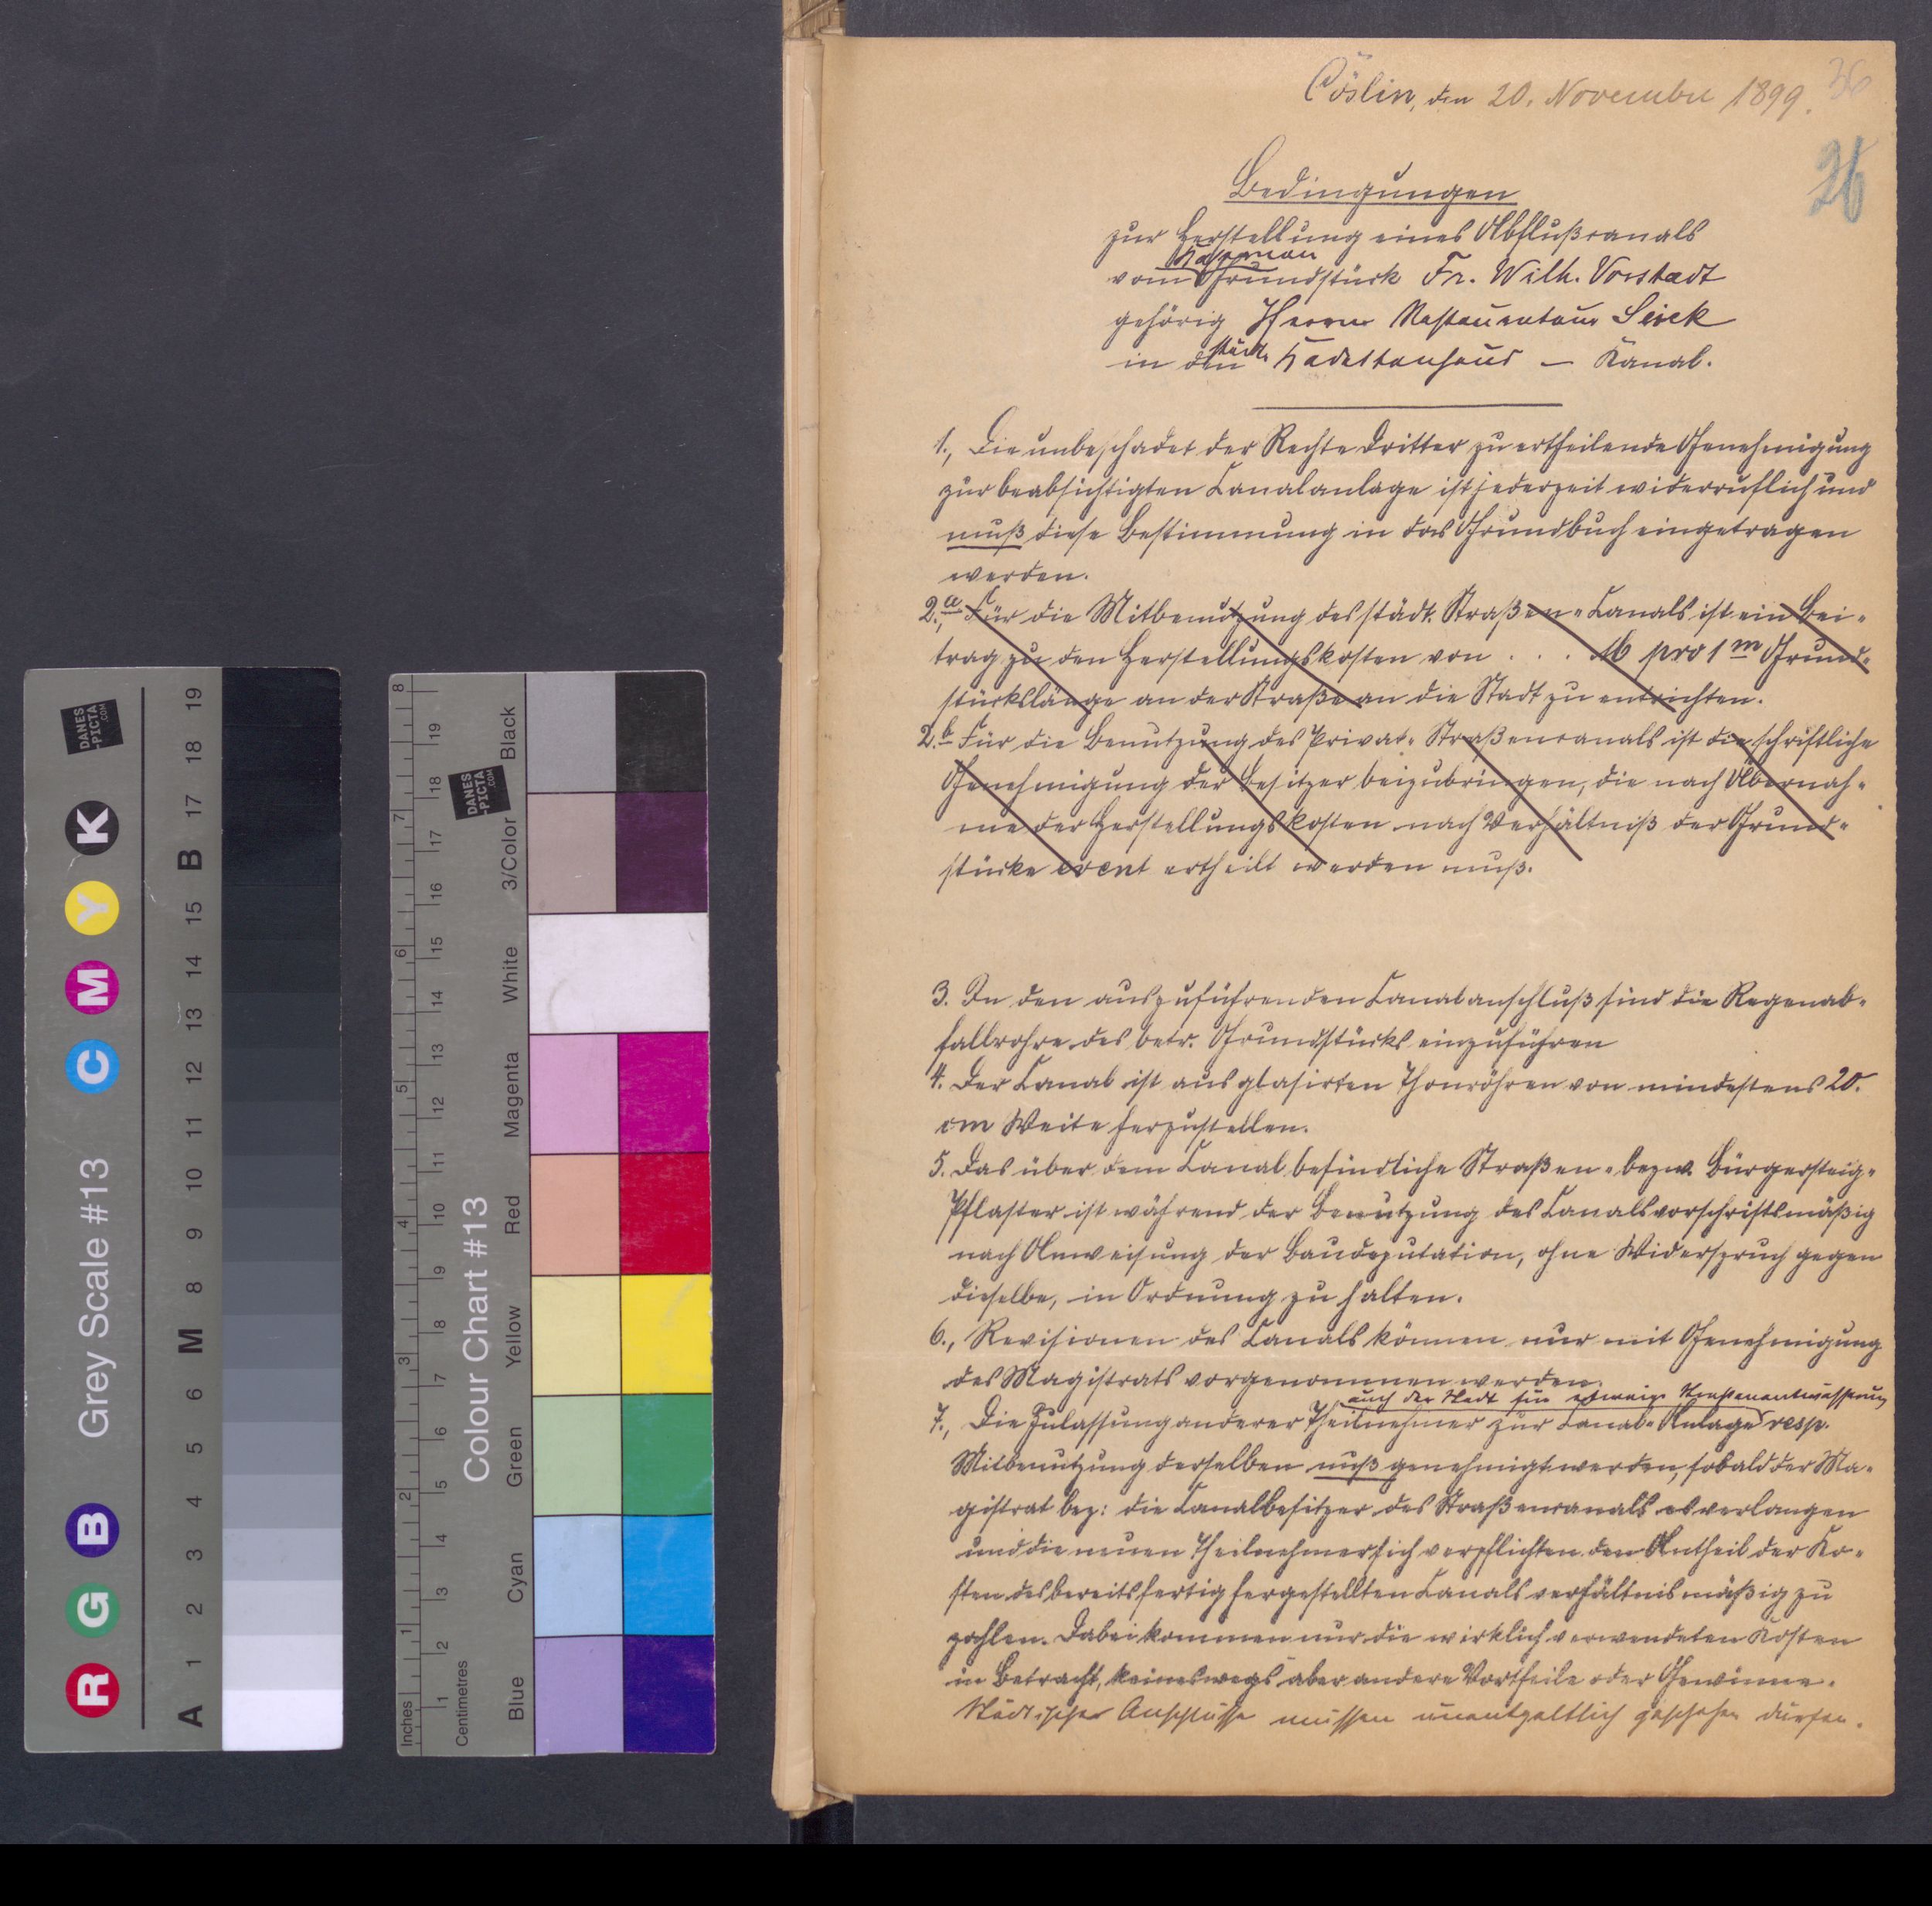 Cöslin, den 20. November 1899.
36
26
Bedingungen
zur Herstellung eines Abflußcanals
vom Grundstück Fr. Wilh. Vorstadt
gehörig Herrn Restaurateur Sieck
in den städt. Kadettenhaus – Kanal.
1., Die unbeschadet der Rechte Dritter zu ertheilende Genehmigung
zur beabsichtigten Canalanlage ist jederzeit widerruflich und
muß diese Bestimmung in das Grundbuch eingetragen
werden.
2.a, Für die Mitbenutzung des städt. Straßen-Canals ist ein Bei-
trag zu den Herstellungskosten von . . . M pro 1 m Grund-
stückslänge an der Straße an die Stadt zu entrichten.
2.b Für die Benutzung des Privat-Straßencanals ist die schriftliche
Genehmigung der Besitzer beizubringen, die nach Übernah-
me der Herstellungskosten nach Verhältniß der Grund-
stücke event ertheilt werden muß.
3. In den auszuführenden Canalanschluß sind die Regenab-
fallrohre des betr. Grundstücks einzuführen
4. Der Canal ist aus glasirten Thonröhren von mindestens 20.
cm Weite herzustellen.
5. Das über dem Canal befindliche Straßen- bezw. Bürgersteig-
Pflaster ist während der Benutzung des Canals vorschriftsmäßig
nach Anweisung der Baudeputation, ohne Widerspruch gegen
dieselbe, in Ordnung zu halten.
6., Revisionen des Canals können nur mit Genehmigung
des Magistrats vorgenommen werden.
auch der Stadt für etwaige Straßenentwässerung
7., Die Zulassung anderer Theilnehmer zur Canal-Anlage resp.
Mitbenutzung derselben muß genehmigt werden, sobald der Ma-
gistrat bez: die Canalbesitzer des Straßencanals es verlangen
und die neuen Theilnehmer sich verpflichten den Antheil der Ko-
sten des bereits fertig hergestellten Canals verhältnismäßig zu
zahlen. Dabei kommen nur die wirklich verwendeten Kosten
in Betracht, keineswegs aber andere Vortheile oder Gewinne.
Städtische Anschlüsse müssen unentgeltlich geschehen dürfen.
Grey Scale #13
A 1 2 3 4 5 6 M 8 9 10 11 12 13 14 15 B 17 18 19
R G B C M Y K
DANES
-PICTA
.COM
Colour Chart #13
Blue Cyan Green Yellow Red Magenta White 3/Color Black
Inches 1 2 3 4 5 6 7 8
Centimetres 1 2 3 4 5 6 7 8 9 10 11 12 13 14 15 16 17 18 19
DANES
-PICTA
.COM